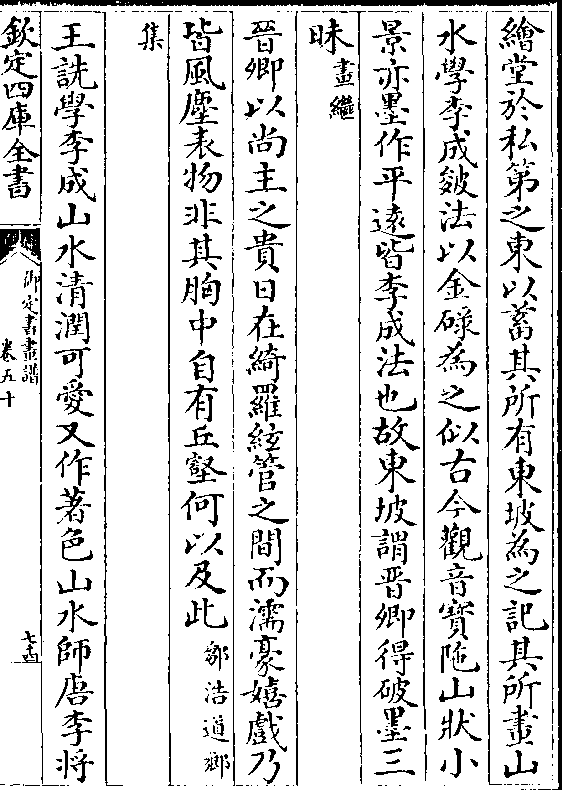 繪堂於私第之東以蓄其所有東坡為之記其所畫山
水學李成皴法以金碌為之似古今觀音寶陁山狀小
景亦墨作平逺皆李成法也故東坡謂晉卿得破墨三
昧畫繼
晉卿以尚主之貴日在綺羅絃管之間而濡豪嬉戲乃
皆風塵表物非其胸中自有丘壑何以及此鄒浩道鄉
集
王詵學李成山水清潤可愛又作著色山水師唐李將
欽定四庫全書
御定書畫譜
卷五十
七十四